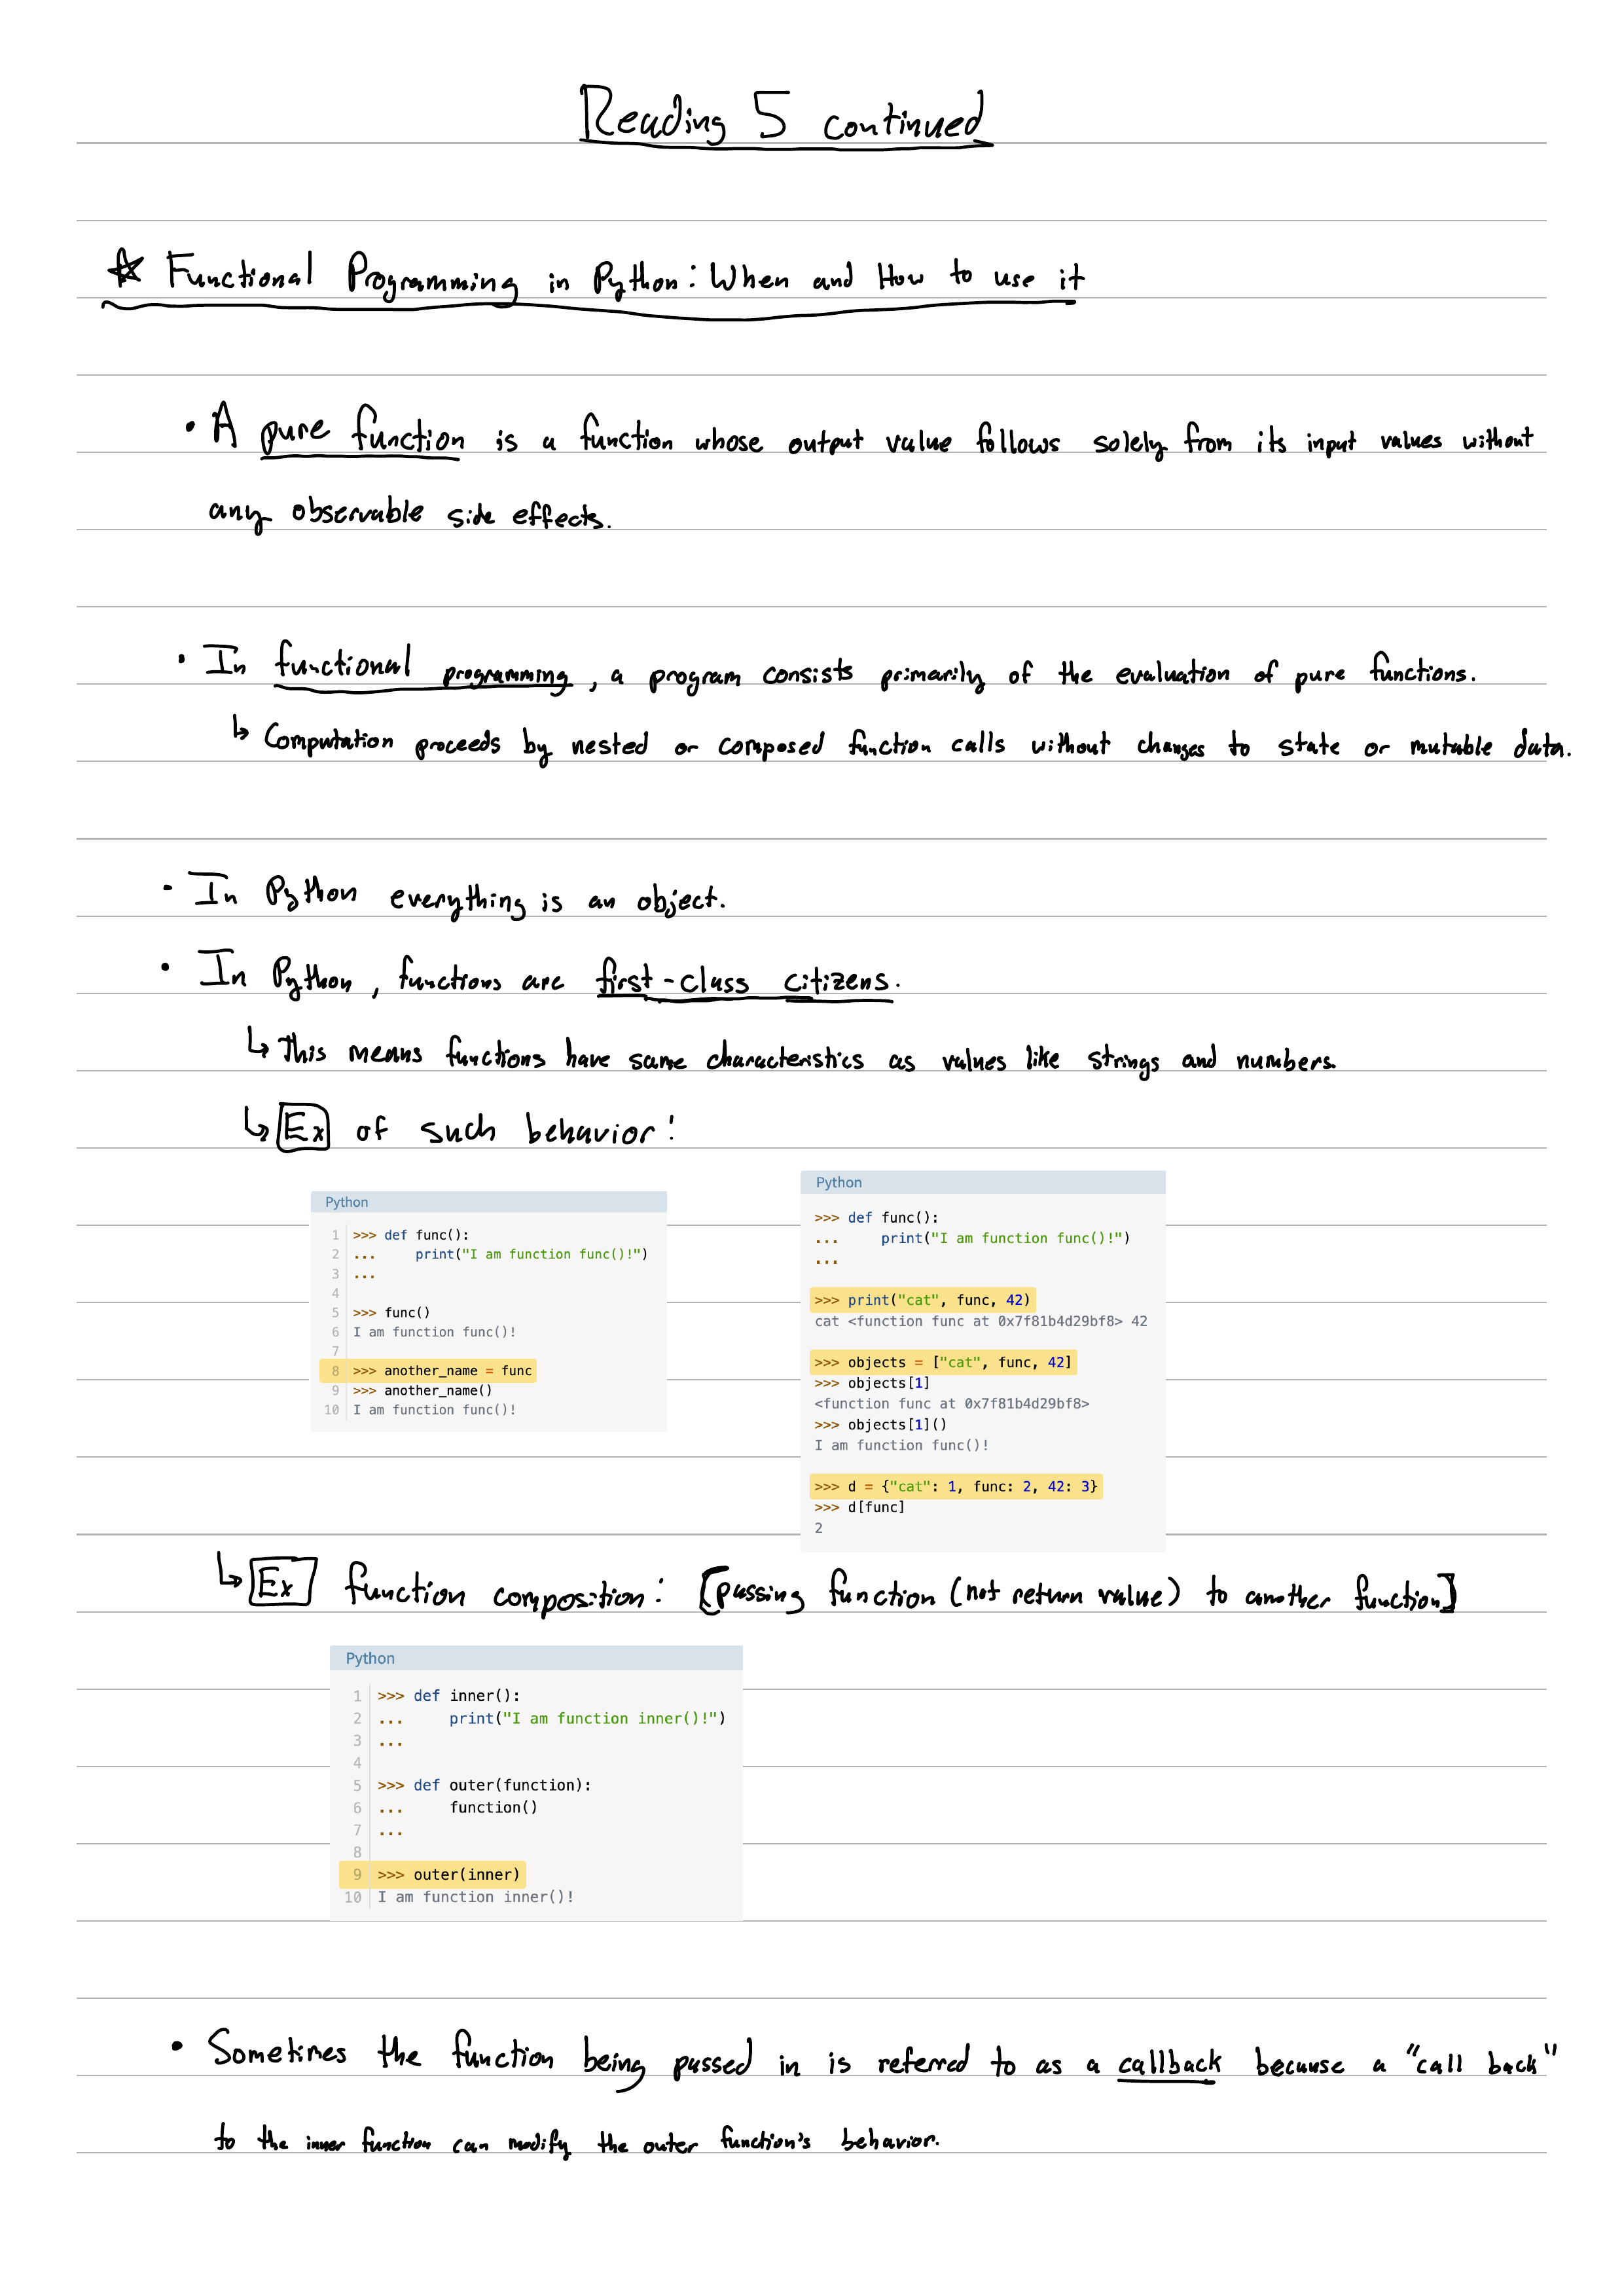 Reading 5 continued
☆ Functional Programming in Python: When and How to use it
• A pure function is a function whose output value follows solely from its input values without
any observable side effects.
• In functional programming, a program consists primarily of the evaluation of pure functions.
↳ Computation proceeds by nested or composed function calls without changes to state or mutable data.
• In Python everything is an object.
• In Python, functions are first-class citizens.
↳ This means functions have same characteristics as values like strings and numbers.
↳ Ex of such behavior:
Python
1 >>> def func():
2 ...     print("I am function func()!")
3 ...
4
5 >>> func()
6 I am function func()!
7
8 >>> another_name = func
9 >>> another_name()
10 I am function func()!
Python
>>> def func():
...     print("I am function func()!")
...
>>> print("cat", func, 42)
cat <function func at 0x7f81b4d29bf8> 42
>>> objects = ["cat", func, 42]
>>> objects[1]
<function func at 0x7f81b4d29bf8>
>>> objects[1]()
I am function func()!
>>> d = {"cat": 1, func: 2, 42: 3}
>>> d[func]
2
↳ Ex function composition: [passing function (not return value) to another function]
Python
1 >>> def inner():
2 ...     print("I am function inner()!")
3 ...
4
5 >>> def outer(function):
6 ...     function()
7 ...
8
9 >>> outer(inner)
10 I am function inner()!
• Sometimes the function being passed in is referred to as a callback because a "call back"
to the inner function can modify the outer function's behavior.